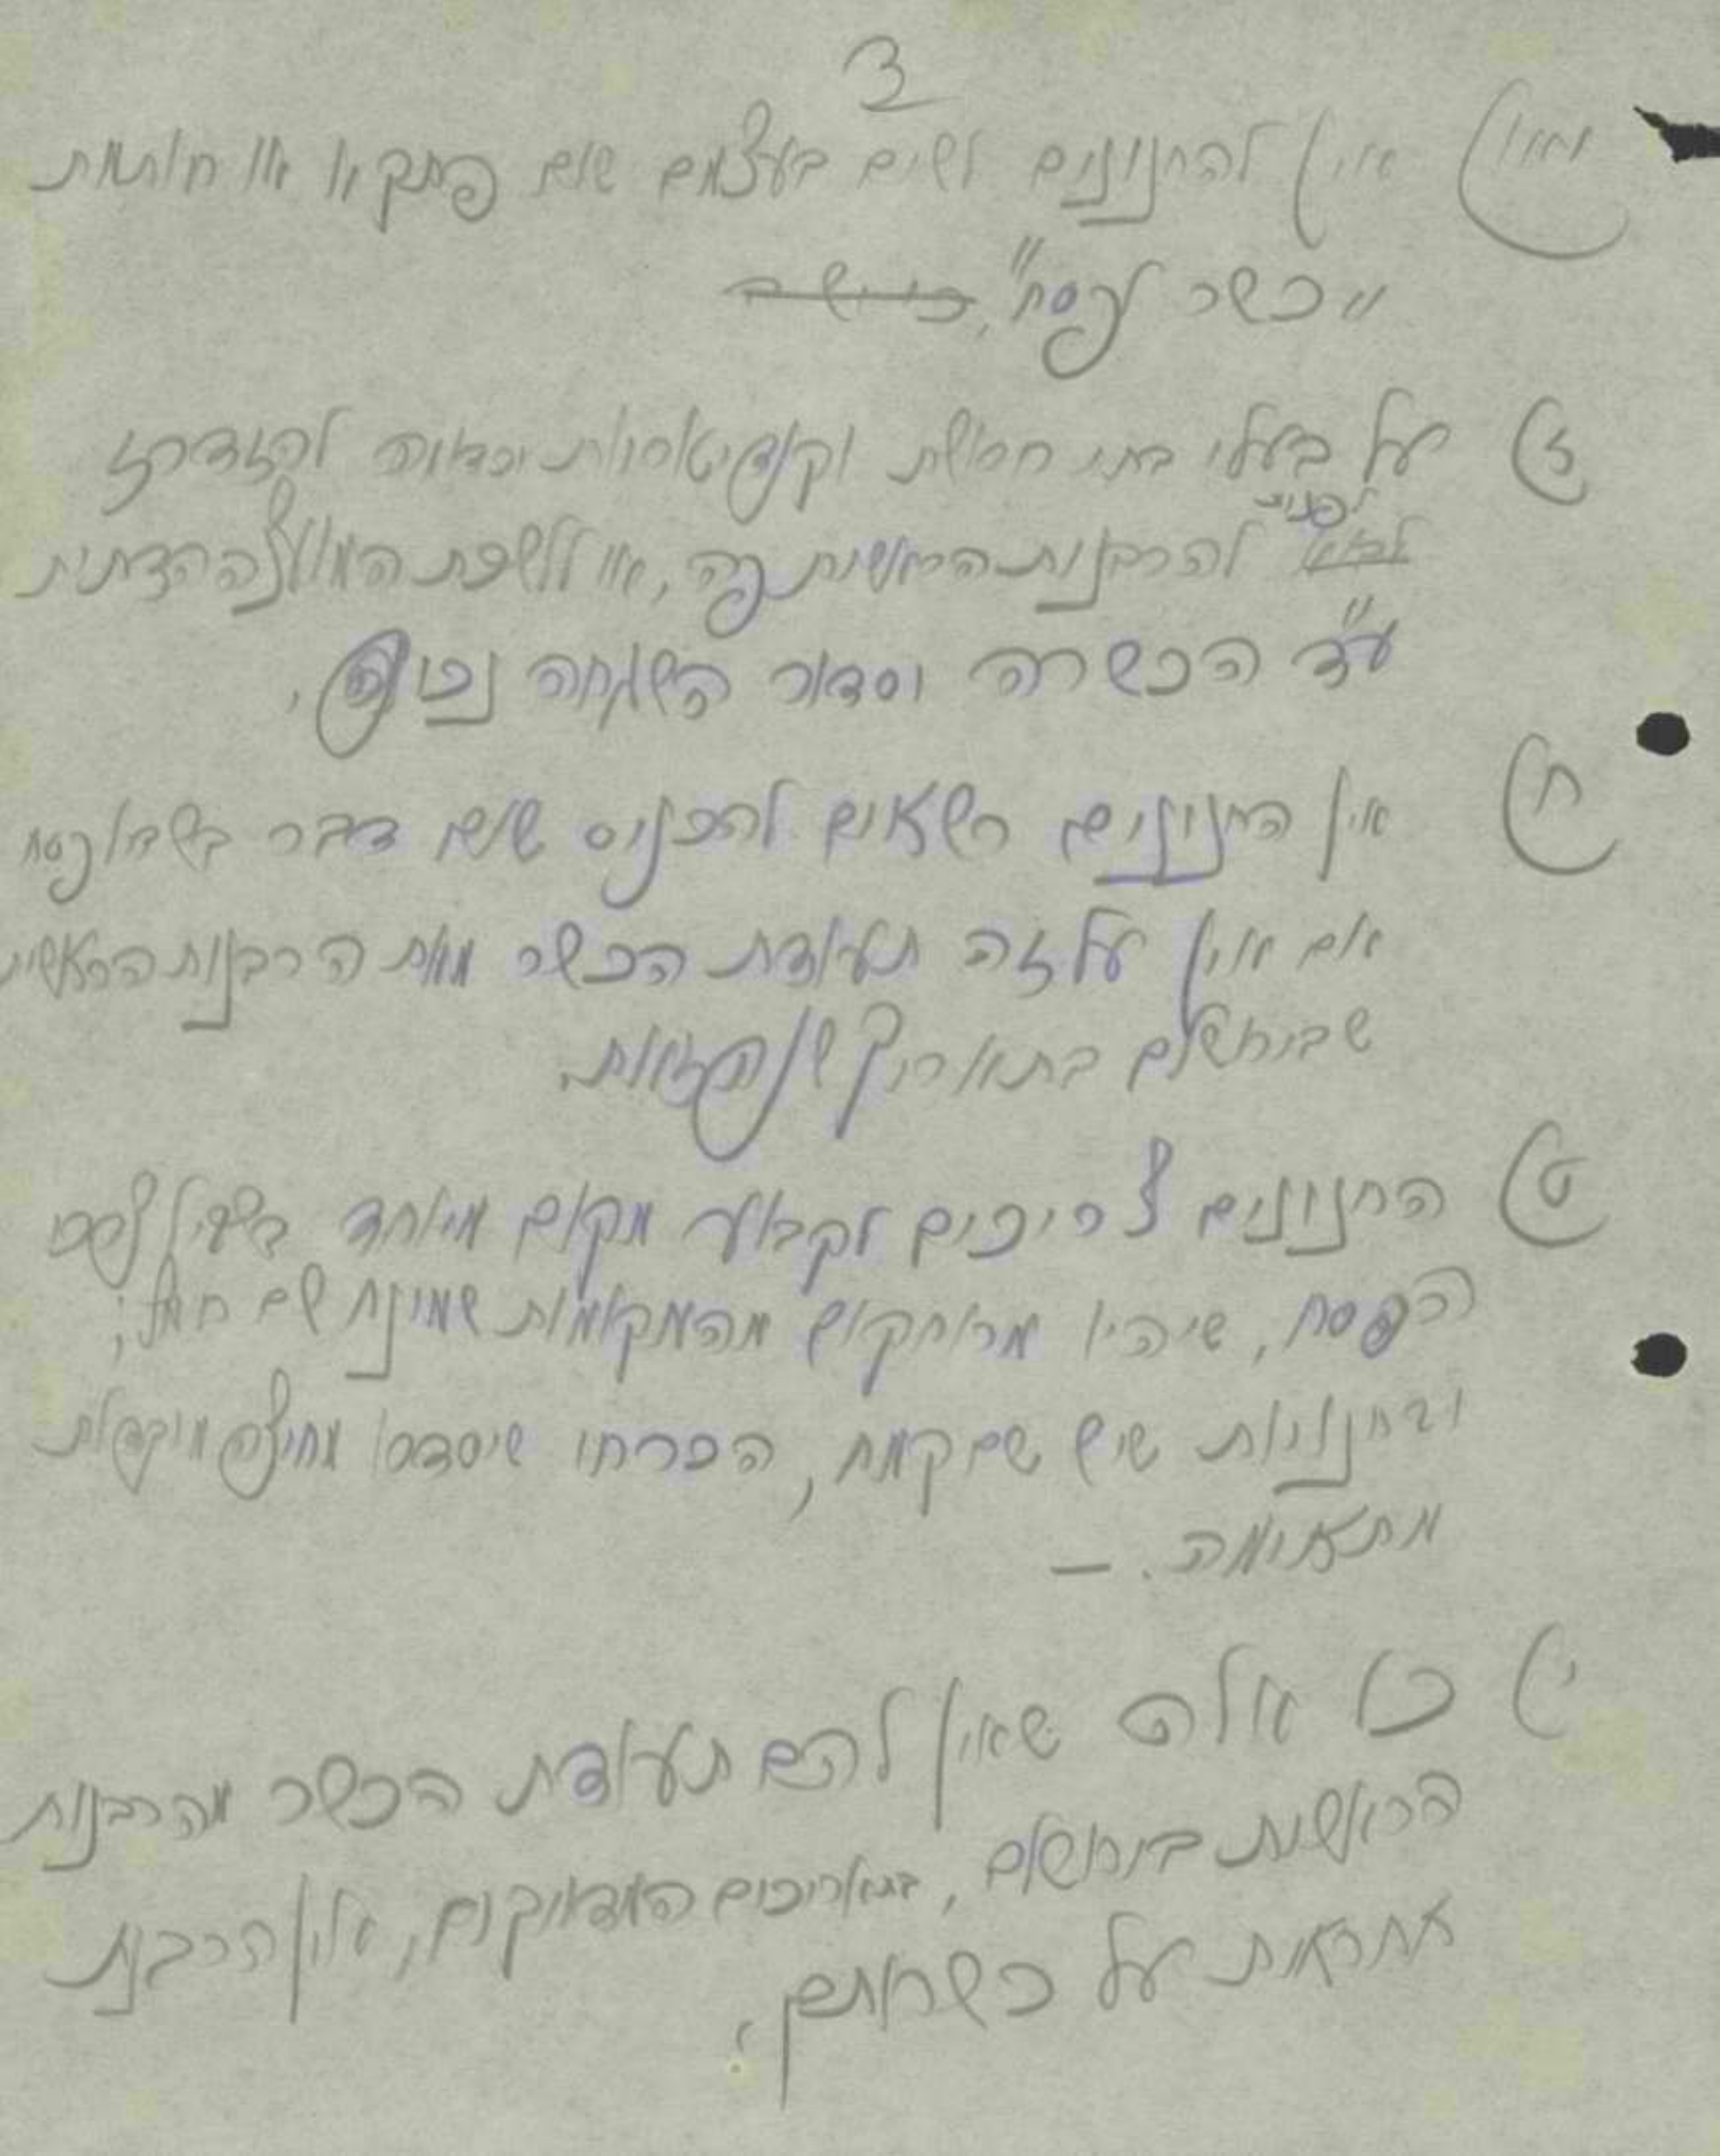 3
ואו) אין להחנונים לשים בעצמם שום פתקא או חותמת
"כשר לפסח",
ז) על בעלי בתי חרושת וקונדיטאריות וכדומה להזדרז
לפנות להרבנות הראשית פה, או ללשכת המועצה הדתית
ע"ד הכשרה וסדור השגחה נכונה.
ח) אין החנונים רשאים להכניס שום דבר בשביל פסח
אם אין על זה תעודת הכשר מאת הרבנות הראשית
שבירושלם בתאריך של שנה זאת.
ט) החנונים צריכים לקבוע מקום מיוחד בשביל צרכי
הפסח, שיהיו מרוחקים מהמקומות שמונח שם חמץ;
ובחנויות שיש שם קמח, הכרחי שיסדרו מחיצה מוקפת
מתאימה. —
י) כל אלה שאין להם תעודת הכשר מהרבנות
הראשית בירושלם, בתאריכים המדויקים, אין הרבנות
אחראית על כשרותם.